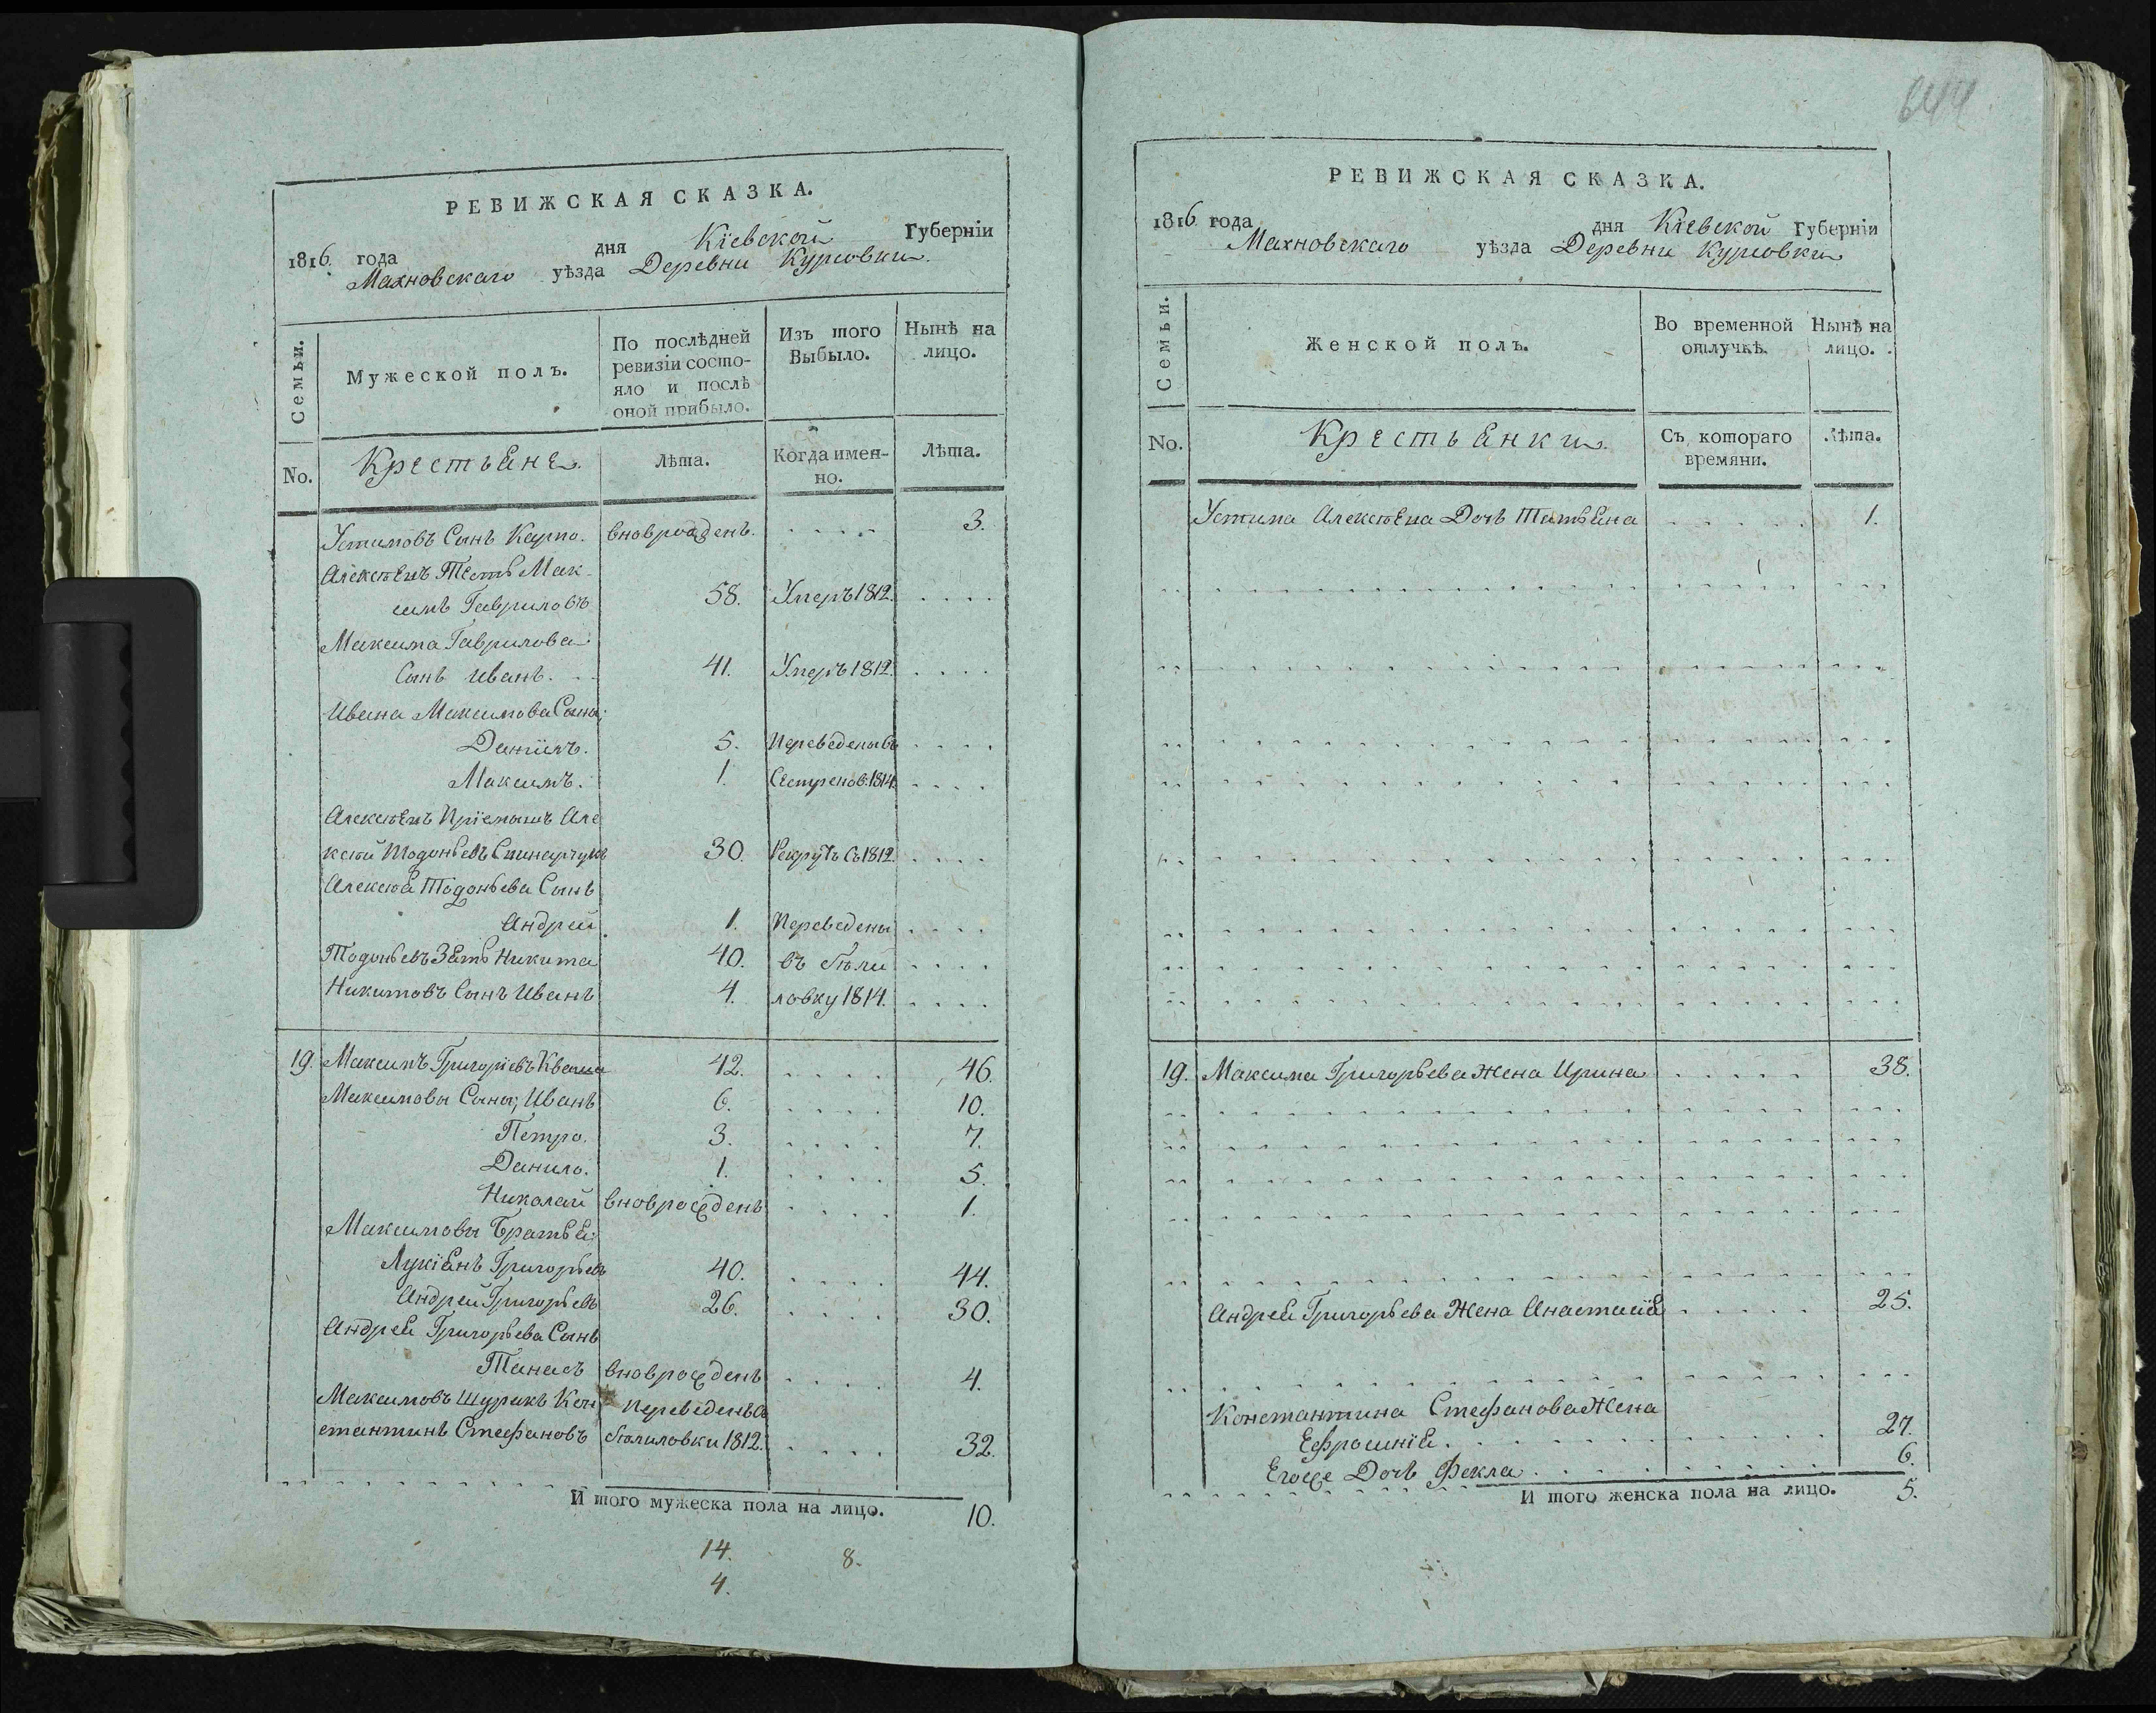 644
РЕВИЖСКАЯ СКАЗКА.
1816 года дня Кіевской Губерніи
Махновскаго уѣзда Деревни Курловки
Семьи.
Мужеской полъ.
По послѣдней ревизіи состо-
яло и послѣ
оной прибыло.
Изъ того
Выбыло.
Нынѣ на
лицо.
No.
Крестьяне.
Лѣта.
Когда имен-
но.
Лѣта.
Устимовъ Сынъ Карпо. вноврожденъ. 3.
Алексѣевъ Тесть Мак-
симъ Гавриловъ 58. Умеръ 1812.
Максима Гаврилова
Сынъ Иванъ. 41. Умеръ 1812.
Ивана Максимова Сыны;
Даніилъ. 5. Переведены въ
Максимъ. 1. Сестренов. 1814.
Алексѣевъ Пріемышъ Але
ксѣй Тодоньевъ 30. Рекрутъ съ 1812.
Алексѣя Тодоньева Сынъ
Андрей 1. Переведены
Тодоньевъ Зять Никита 40. въ Бѣли
Никитовъ Сынъ Иванъ 4. ловку 1814.
19. Максимъ Григоріевъ Кваша 42. 46.
Максимовы Сыны; Иванъ 6. 10.
Петро. 3. 7.
Данило. 1. 5.
Николай вноврожденъ 1.
Максимовы Братья;
Лукіянъ Григорьевъ 40. 44.
Андрей Григорьевъ 26. 30.
Андрея Григорьева Сынъ
Танасъ вноврожденъ 4.
Максимовъ Шурикъ Кон Переведенъ съ
стантинъ Стефановъ Бѣлиловки 1812. 32.
И того мужеска пола на лицо. 10.
14. 8.
4.
РЕВИЖСКАЯ СКАЗКА.
1816 года дня Кіевской Губерніи
Махновскаго уѣзда Деревни Курловки
Семьи.
Женской полъ.
Во временной
отлучкѣ.
Нынѣ на
лицо.
No.
Крестьянки
Съ котораго
времяни.
Лѣта.
Устима Алексѣева Дочь Татьяна 1.
19. Максима Григорьева Жена Ирина 38.
Андрея Григорьева Жена Анастасія 25.
Константина Стефанова Жена
Ефросинія. 27.
Егоже Дочь Фекла. 6.
И того женска пола на лицо. 5.